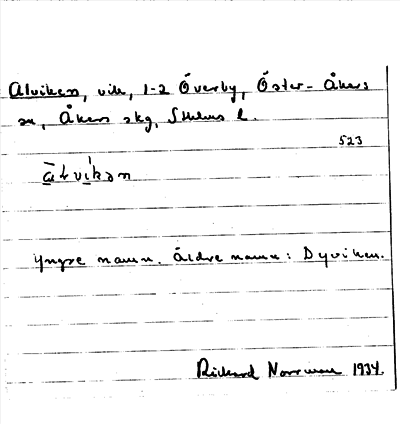 Alviken, vik, 1-2 Överby, Öster-Åkers
sn, Åkers skg, Sthlms l.
523
Yngre namn. Äldre namn: Dyviken.
Rickard Norrman 1934.